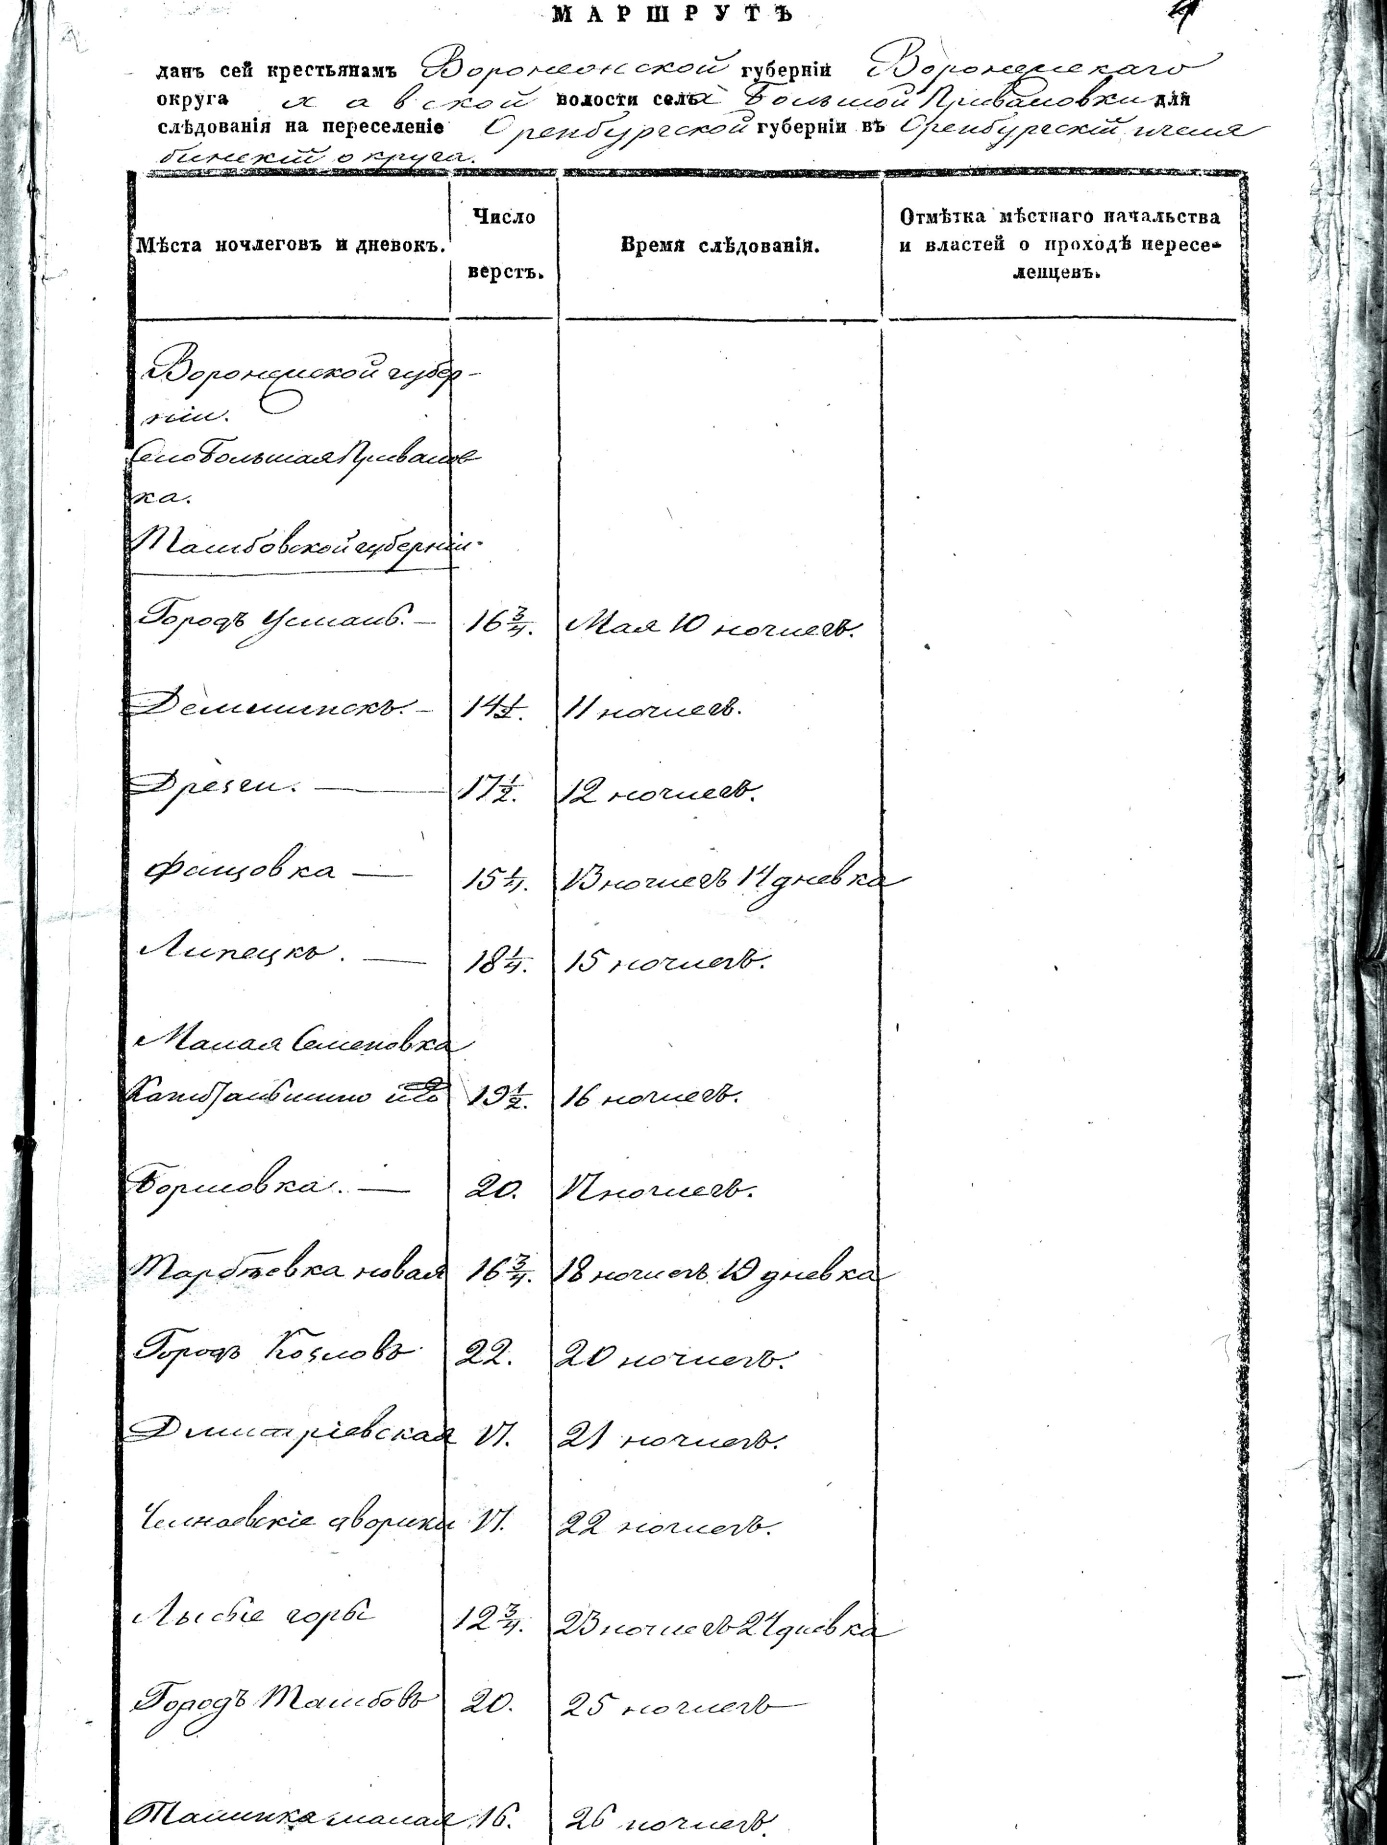 МАРШРУТЪ
данъ сей крестьянамъ Воронежской губерніи Воронежскаго
округа Хавской волости села Большой Приваловки для
слѣдованія на переселеніе Оренбургской губерніи въ Оренбургскій и челя
бинскій округа.
Мѣста ночлеговъ и дневокъ.
Число верстъ.
Время слѣдованія.
Отмѣтка мѣстнаго начальства
и властей о проходѣ пересе-
ленцевъ.
Воронежской губер-
ніи.
Село Большая Привалов
ка.
Тамбовской губерніи.
Городъ Усмань. — 16 3/4. Мая 10 ночлегъ.
Демшинскъ. — 14 1/2. 11 ночлегъ.
Дрезги. — 17 1/2. 12 ночлегъ.
Фащовка — 15 1/4. 13 ночлегъ 14 дневка
Липецкъ. — 18 1/4. 15 ночлегъ.
Малая Семеновка
19 1/2. 16 ночлегъ.
Борисовка. — 20. 17 ночлегъ.
Тарбѣевка новая 16 3/4. 18 ночлегъ 19 дневка
Городъ Козловъ 22. 20 ночлегъ.
Дмитріевская 17. 21 ночлегъ.
Челнавскіе дворики 17. 22 ночлегъ.
Лысые горы 12 3/4. 23 ночлегъ 24 дневка
Городъ Тамбовъ 20. 25 ночлегъ
малая 16. 26 ночлегъ.